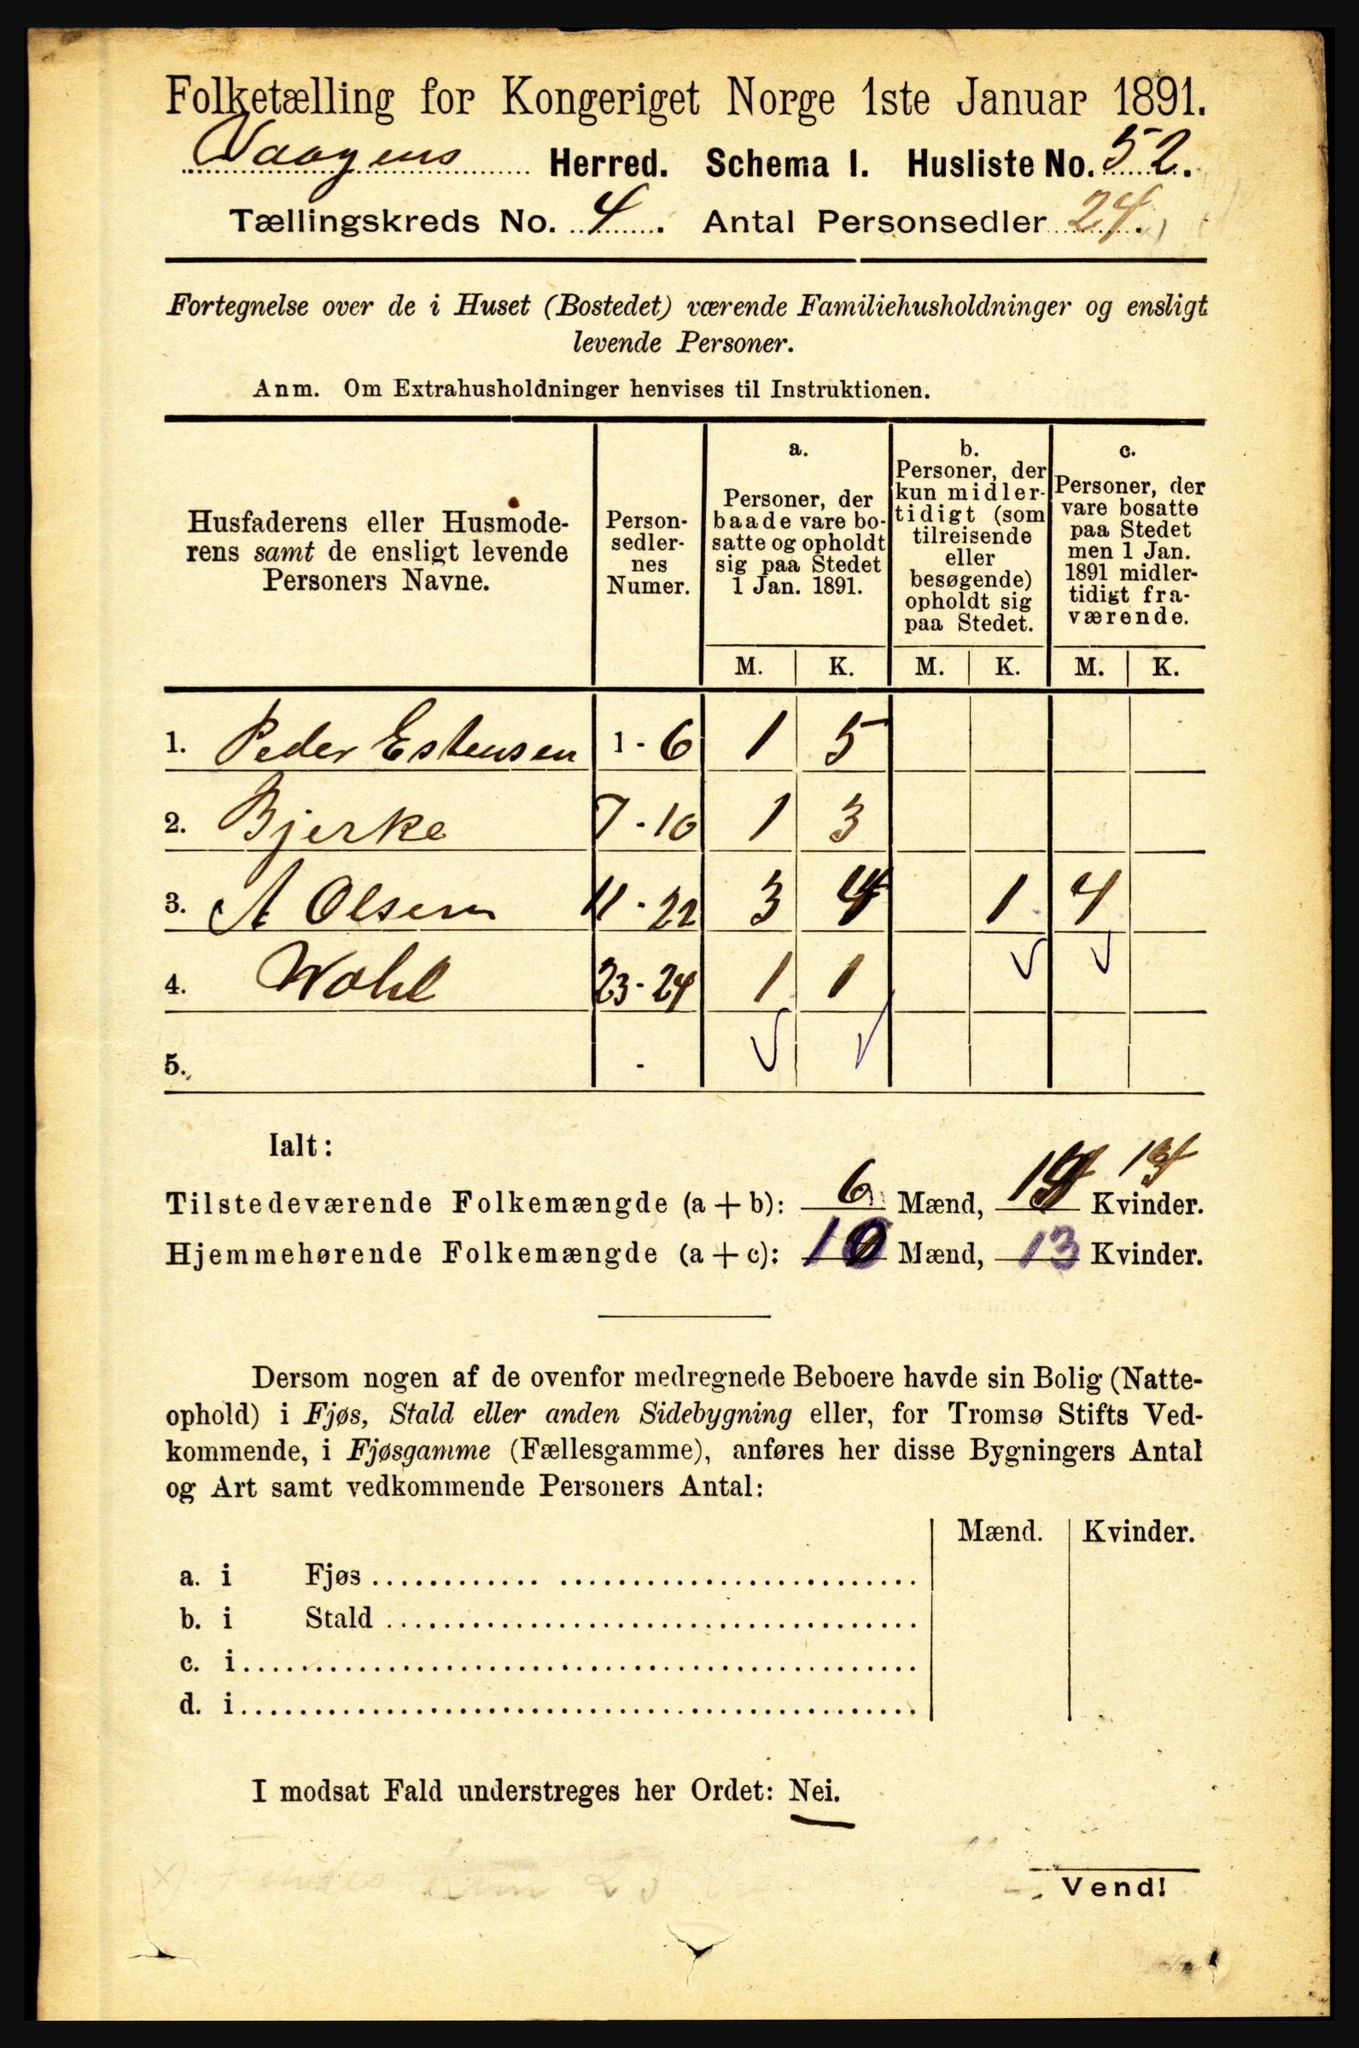 Folketælling for Kongeriget Norge 1ste Januar 1891.
Vaagens Herred. Schema I. Husliste No. 52.
Tællingskreds No. 4. Antal Personsedler 24.
Fortegnelse over de i Huset (Bostedet) værende Familiehusholdninger og ensligt
levende Personer.
Anm. Om Extrahusholdninger henvises til Instruktionen.
Husfaderens eller Husmode-
rens samt de ensligt levende
Personers Navne.
Person-
sedler-
nes
Numer.
a.
Personer, der
baade vare bo-
satte og opholdt
sig paa Stedet
1 Jan. 1891.
b.
Personer, der
kun midler-
tidigt (som
tilreisende
eller
besøgende)
opholdt sig
paa Stedet.
c.
Personer, der
vare bosatte
paa Stedet
men 1 Jan.
1891 midler-
tidigt fra-
værende.
M. K. M. K. M. K.
1. Peder Estensen 1 - 6 1 5
2. Bjerke 7 - 10 1 3
3. A Olsen 11 - 22 3 4 1 4
4. Wohl 23 - 24 1 1
5. -
Ialt:
13
Tilstedeværende Folkemængde (a + b): 6 Mænd, Kvinder.
Hjemmehørende Folkemængde (a + c): 10 Mænd, 13 Kvinder.
Dersom nogen af de ovenfor medregnede Beboere havde sin Bolig (Natte-
ophold) i Fjøs, Stald eller anden Sidebygning eller, for Tromsø Stifts Ved-
kommende, i Fjøsgamme (Fællesgamme), anføres her disse Bygningers Antal
og Art samt vedkommende Personers Antal:
Mænd. Kvinder.
a. i Fjøs
b. i Stald
c. i
d. i
I modsat Fald understreges her Ordet: Nei.
Vend!